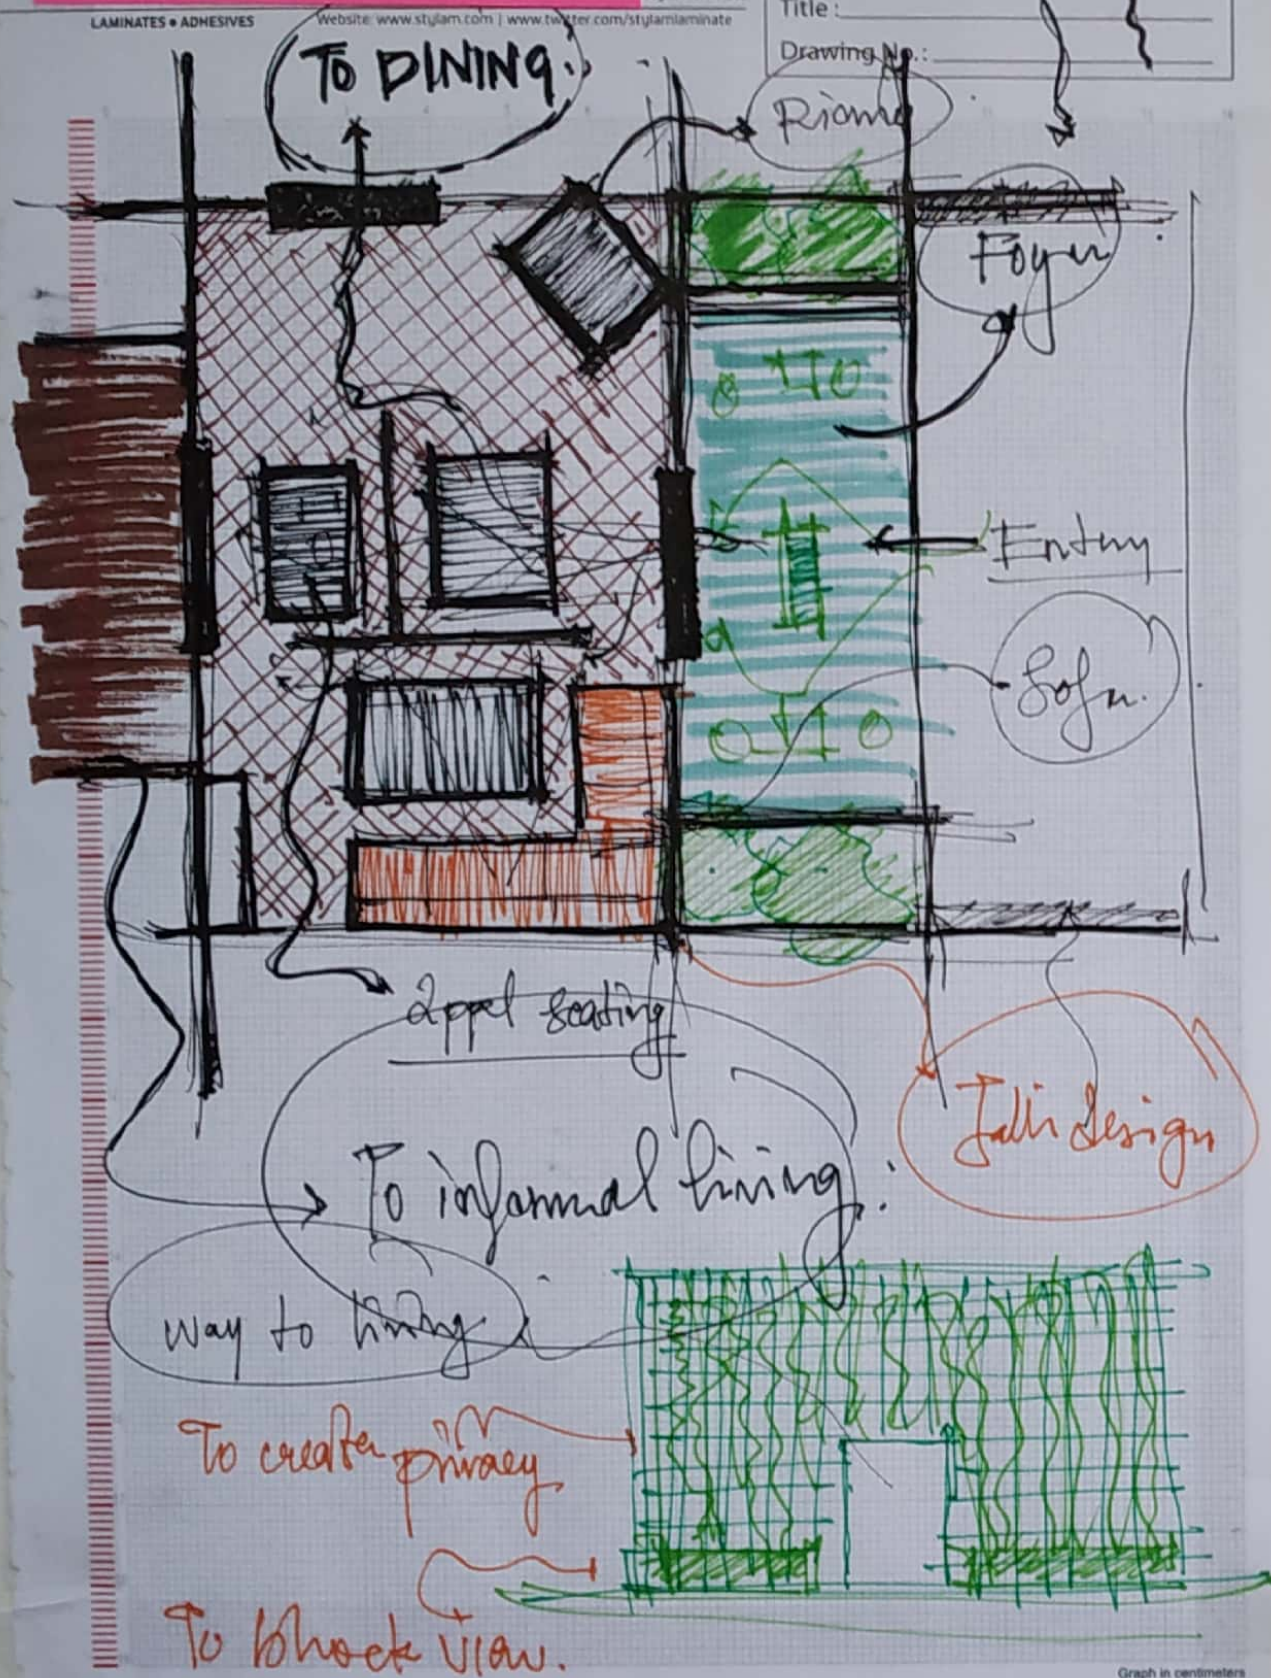 LAMINATES • ADHESIVES
Website: www.stylam.com | www.twitter.com/stylamlaminate
Title :
Drawing No.:
TO DINING.
Foyer
Entry
Sofa.
seating
Jalli design
To informal living.
way to living
To create privacy
To block view.
Graph in centimeters